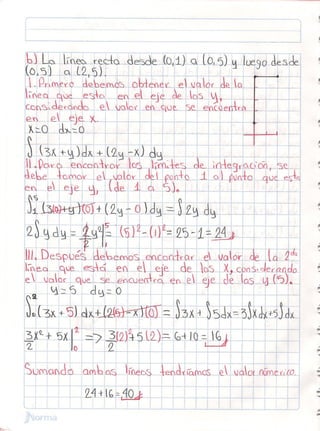 b) La línea recta desde (0,1) a (0,5) y luego desde
(0,5) a (2,5):
I. Primero debemos obtener el valor de la
línea que esta en el eje de los y,
considerando el valor en que se encuentra
en el eje x.
x=0 dx=0
∫ (3x+y)dx + (2y-x) dy
II. Para encontrar los límites de integración, se
debe tomar el valor del punto 1 al punto que esta
en el eje y, (de 1 a 5).
∫₁⁵ (3(0)+y)(0) + (2y-0) dy = ∫ 2y dy
2∫ y dy = 2y²/2 |₁⁵ = (5)²-(1)² = 25-1 = 24
III. Después debemos encontrar el valor de la 2da
línea que está en el eje de los X, considerando
el valor que se encuentra en el eje de los y (5).
y=5 dy=0
∫₀² (3x+5) dx + (2(5)-x)(0) = ∫3x + ∫5dx = 3∫xdx+5∫dx
3x²/2 + 5x |₀² => 3(2)²/2 + 5(2) = 6+10 = 16
Sumando ambas líneas tendríamos el valor númerico.
24+16=40
Norma